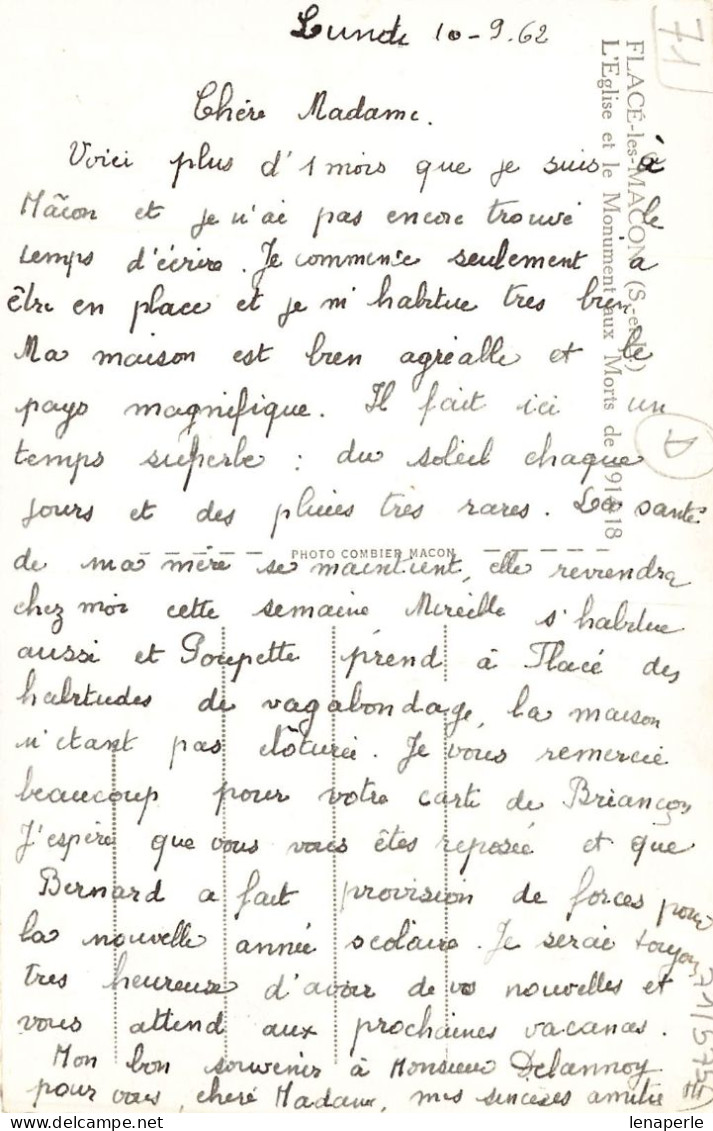 Lundi 10-9.62
Chère Madame.
Voici plus d'1 mois que je suis à
Mâcon et je n'ai pas encore trouvé le
temps d'écrire. Je commence seulement à
être en place et je m'habitue très bien.
Ma maison est bien agréable et le
pays magnifique. Il fait ici un
temps superbe : du soleil chaque
jours et des pluies très rares. La santé
de ma mère se maintient, elle reviendra
chez moi cette semaine Mireille s'habitue
aussi et Poupette prend à Flacé des
habitudes de vagabondage, la maison
n'étant pas clôturée. Je vous remercie
beaucoup pour votre carte de Briançon
J'espère que vous vous êtes reposée et que
Bernard a fait provision de forces pour
la nouvelle année scolaire. Je serai toujours
très heureuse d'avoir de vos nouvelles et
vous attend aux prochaines vacances.
Mon bon souvenir à Monsieur Delannoy
pour vous, chère Madame, mes sincères amitiés
PHOTO COMBIER MACON
FLACÉ-les-MACON (S.-et-L.)
L'Eglise et le Monument aux Morts de 1914-18
71
D
71/5755
lenaperle